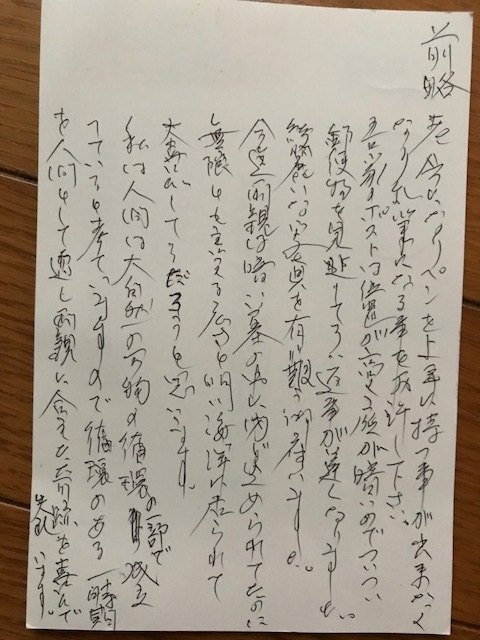 前略
歩 今もかなりペンを上手に持つ事が出来なく
なり乱筆になる事をお許し下さい。
吾が家のポストは位置が高く庭が暗いのでついつい
郵便物を見貼してしまい返事が遅くなりました。
綺麗な写真を有り難う御座いました。
今迄両親は暗い墓の中に閉じ込められてたのに
無限とも言える広く明い海に出られて
大喜びしてるだろうと思います。
私は人間は大自然の万物の循環の一部で成立
っていると考ていますので循環のある一時期
を人間として過し両親に会えた奇跡を喜んで
います。
失礼